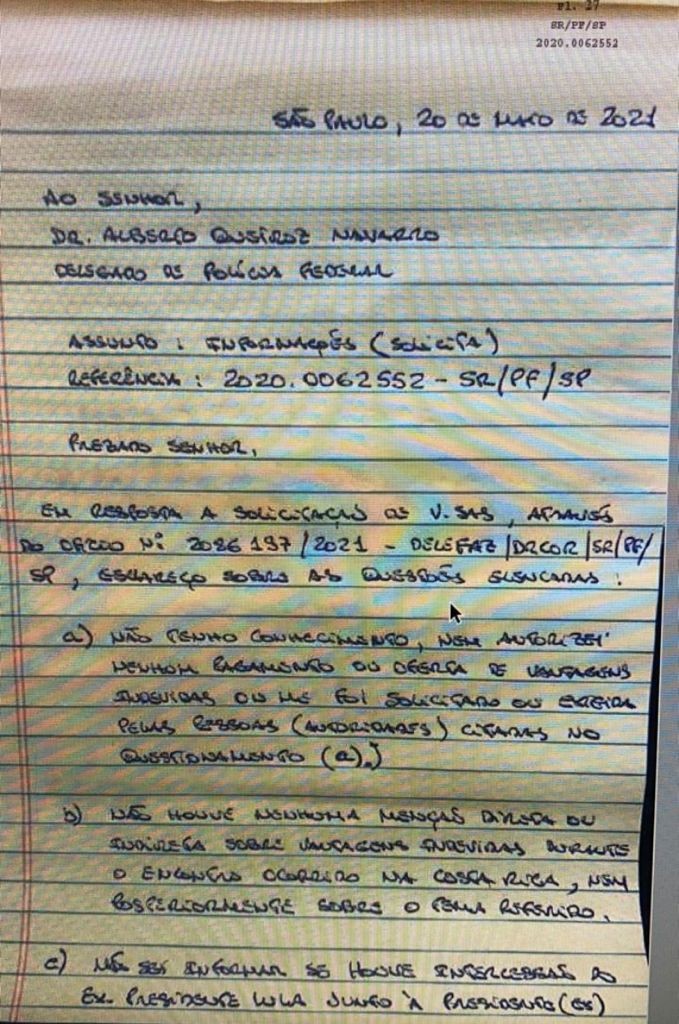 Fl. 27
SR/PF/SP
2020.0062552
SÃO PAULO, 20 DE MAIO DE 2021
AO SENHOR,
DR. ALBERTO QUEIROZ NAVARRO
DELEGADO DE POLÍCIA FEDERAL
ASSUNTO: INFORMAÇÕES (SOLICITA)
REFERÊNCIA: 2020.0062552 - SR/PF/SP
PREZADO SENHOR,
EM RESPOSTA A SOLICITAÇÃO DE V.SAS, ATRAVÉS
DO OFÍCIO Nº 2086197/2021 - DELEFAZ/DRCOR/SR/PF/
SP, ESCLAREÇO SOBRE AS QUESTÕES ELENCADAS:
a) NÃO TENHO CONHECIMENTO, NEM AUTORIZEI
NENHUM PAGAMENTO OU OFERTA DE VANTAGENS
INDEVIDAS OU ME FOI SOLICITADO OU EXIGIDA
PELAS PESSOAS (AUTORIDADES) CITADAS NO
QUESTIONAMENTO (a).)
b) NÃO HOUVE NENHUMA MENÇÃO DIRETA OU
INDIRETA SOBRE VANTAGENS INDEVIDAS DURANTE
O ENCONTRO OCORRIDO NA COSTA RICA, NEM
POSTERIORMENTE SOBRE O TEMA REFERIDO.
c) NÃO SEI INFORMAR SE HOUVE INTERCESSÃO DO
EX. PRESIDENTE LULA JUNTO À PRESIDENTE(ES)